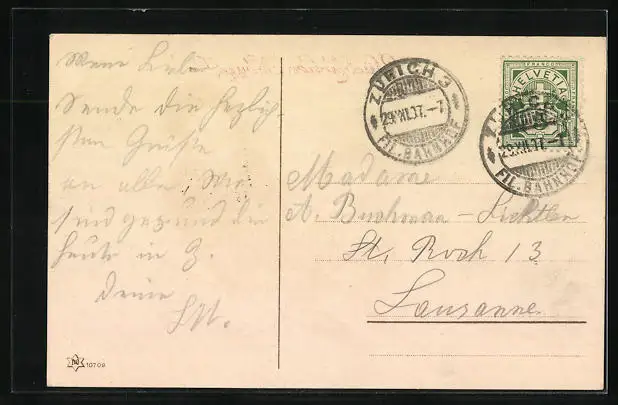 Mein Liebe
Sende die herzlich
sten Grüsse
an alle. Wir
sind gesund bin
heute in Z.
Deine
ZÜRICH 3
29.XII.07.-7
FIL. BAHNHOF
FRANCO
HELVETIA
ZÜRICH 3
29.XII.07.-7
FIL. BAHNHOF
Madame
A. Buchman - Lichtlen
St. Roch 13
Lausanne
10709